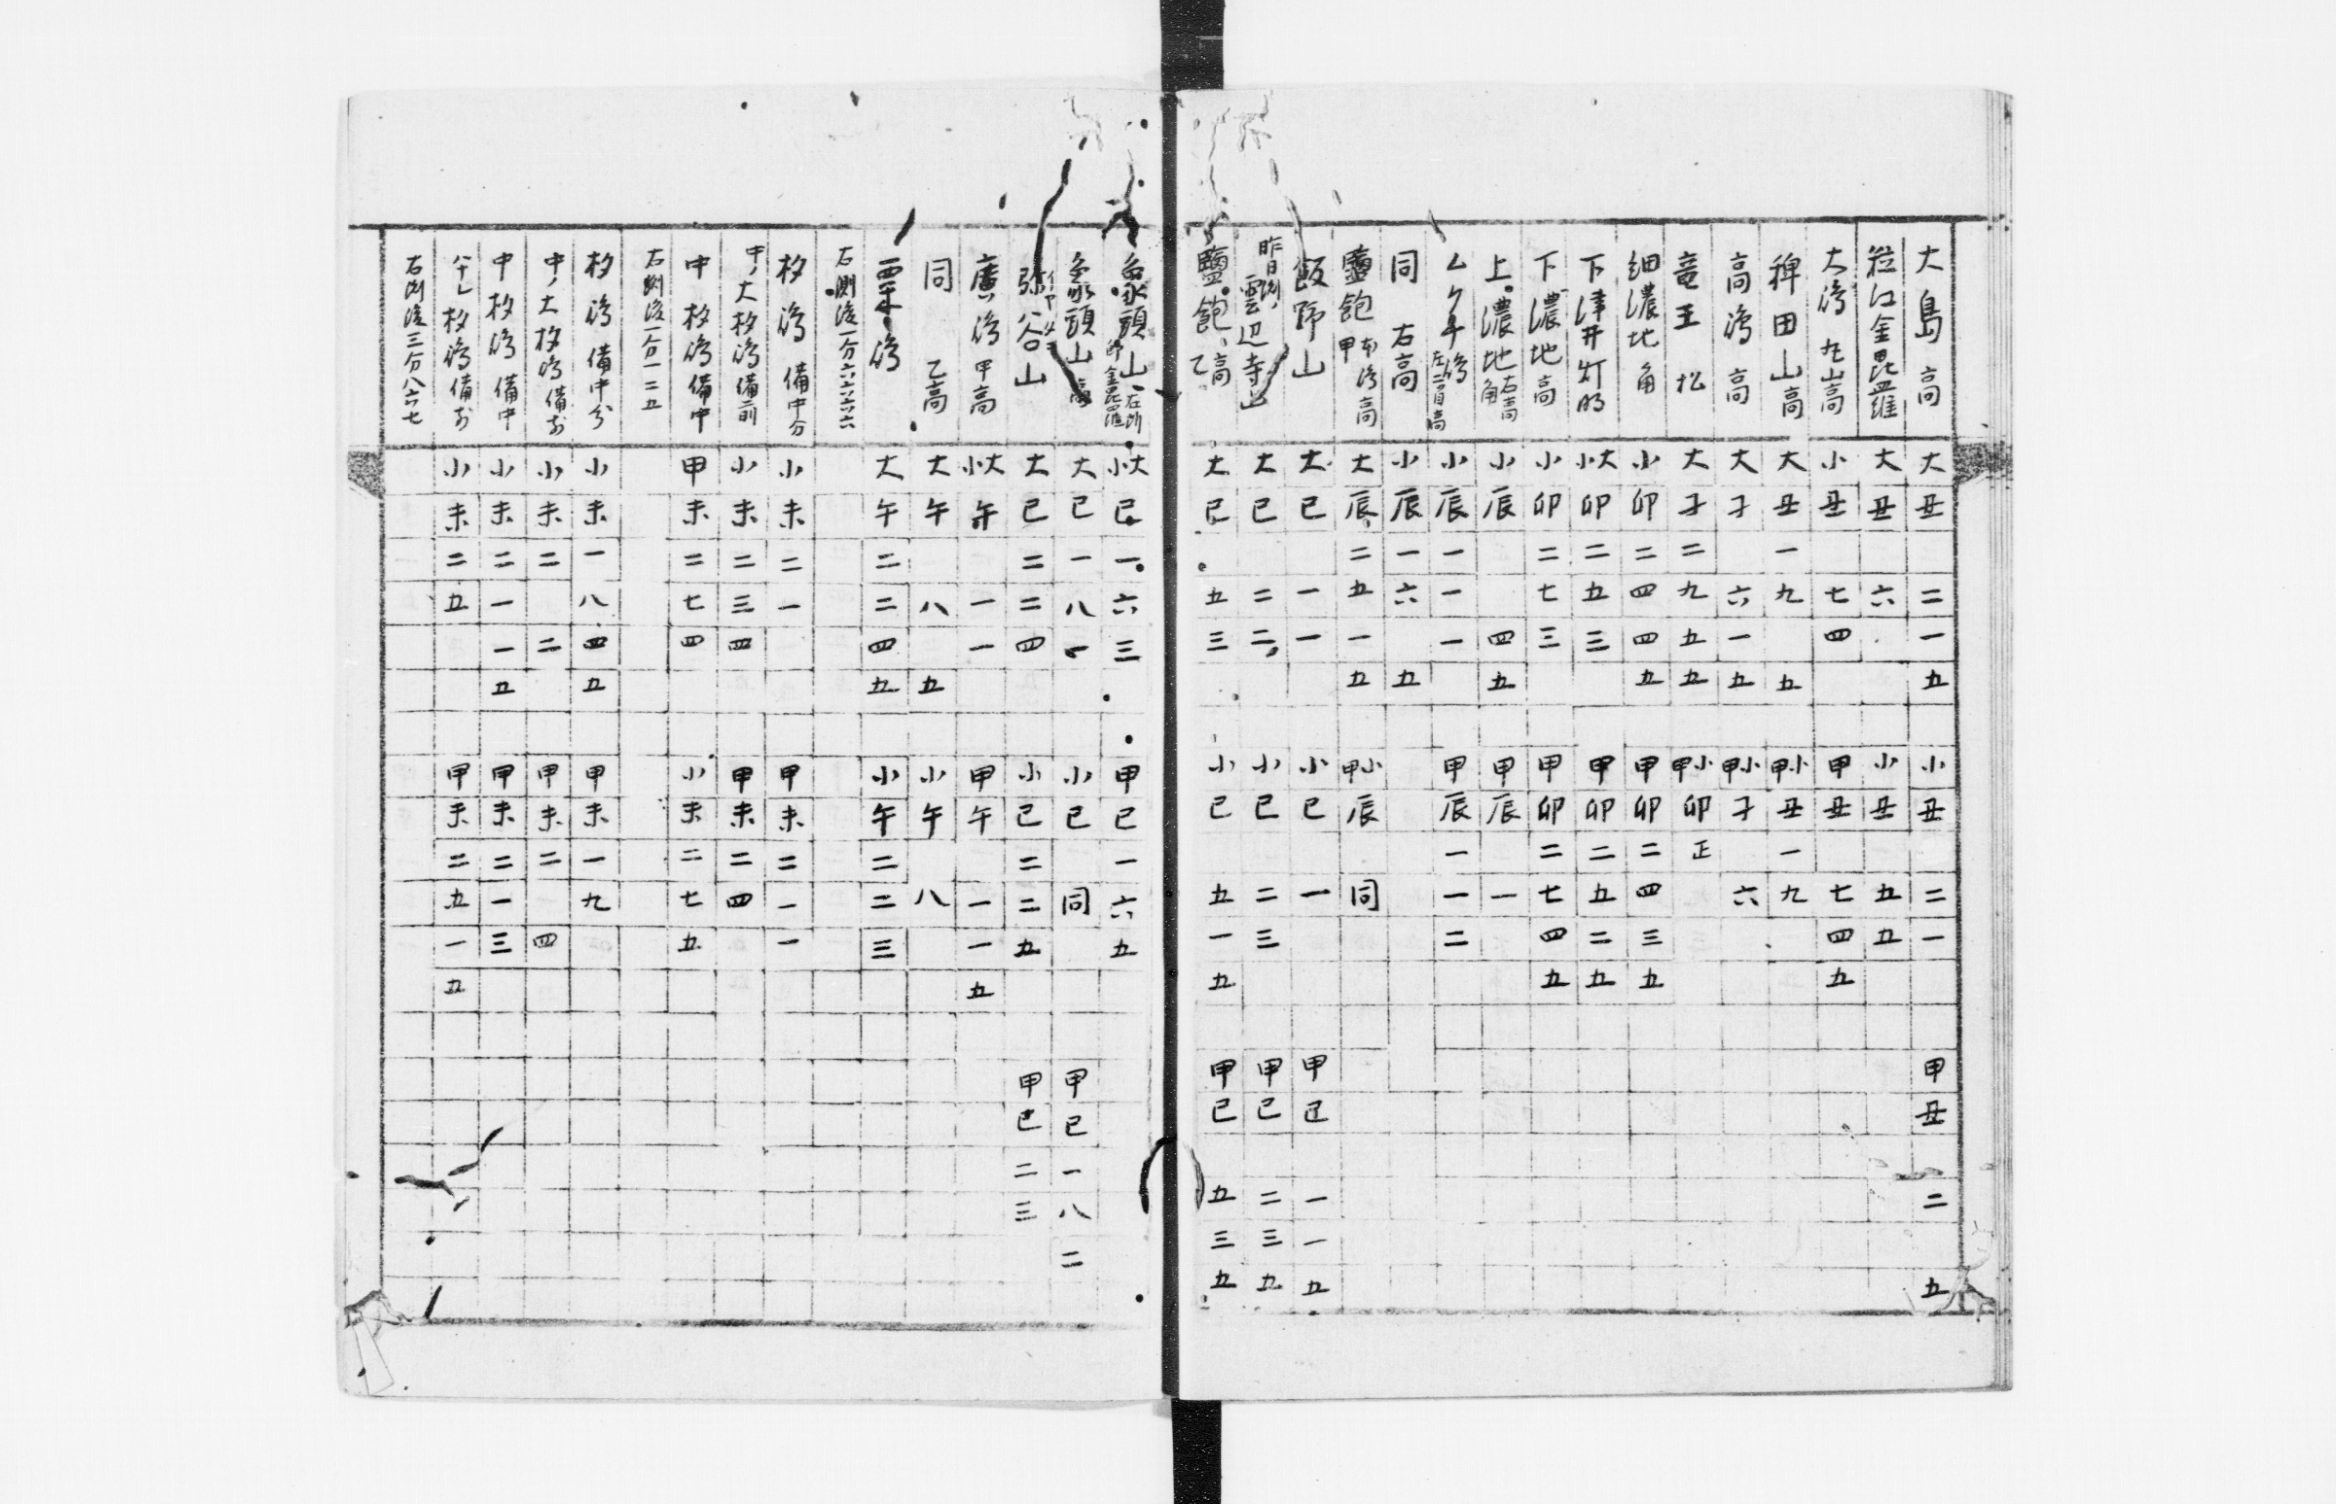 大島高 大丑 二一五 小丑 二一 甲丑 二 五
粒江金毘羅 大丑 六 小丑 五五
大湾丸山高 小丑 七四 甲丑 七四五
稗田山高 大丑一九 五 甲小丑一九
高湾高 大子 六一五 甲小子 六
竜王松 大子二九五五 甲小卯正
細濃地角 小卯二四四五 甲卯二四三五
下津井灯明 小大卯二五三 甲卯二五二五
下濃地高 小卯二七三 甲卯二七四五
上濃地右高角 小辰 四五 甲辰 一
小辰一一一 甲辰一一二
同右高 小辰一六 五
鹽飽 高甲 大辰二五一五 甲小辰 同
飯野山 大巳 一一 小巳 一 甲巳 一一五
昨日測 雲辺寺山 大巳 二二 小巳 二三 甲巳 二三五
鹽飽高乙 大巳 五三 小巳 五一五 甲巳 五三五
象頭山 金毘羅 小大巳一六三 甲巳一六五
象頭山 大巳一八一 小巳 同 甲巳一八二
弥谷山 大巳二二四 小巳二二五 甲巳二三
廣湾甲高 小大午 一一 甲午 一一五
同乙高 大午 八 五 小午 八
粟湾 大午二二四五 小午二二三
右測後一分六六六六
杦湾備中分 小未二一 甲未二一一
中ノ大杦湾備前 小未二三四 甲未二四
中杦湾備中 甲未二七四 小未二七五
右測後一分一二五
杦湾備中分 小未一八四五 甲未一九
中ノ大杦湾備前 小未二 二 甲未二 四
中杦湾備中 小未二一一五 甲未二一三
杦湾備前 小未二五 甲未二五一五
右測後三分八六七